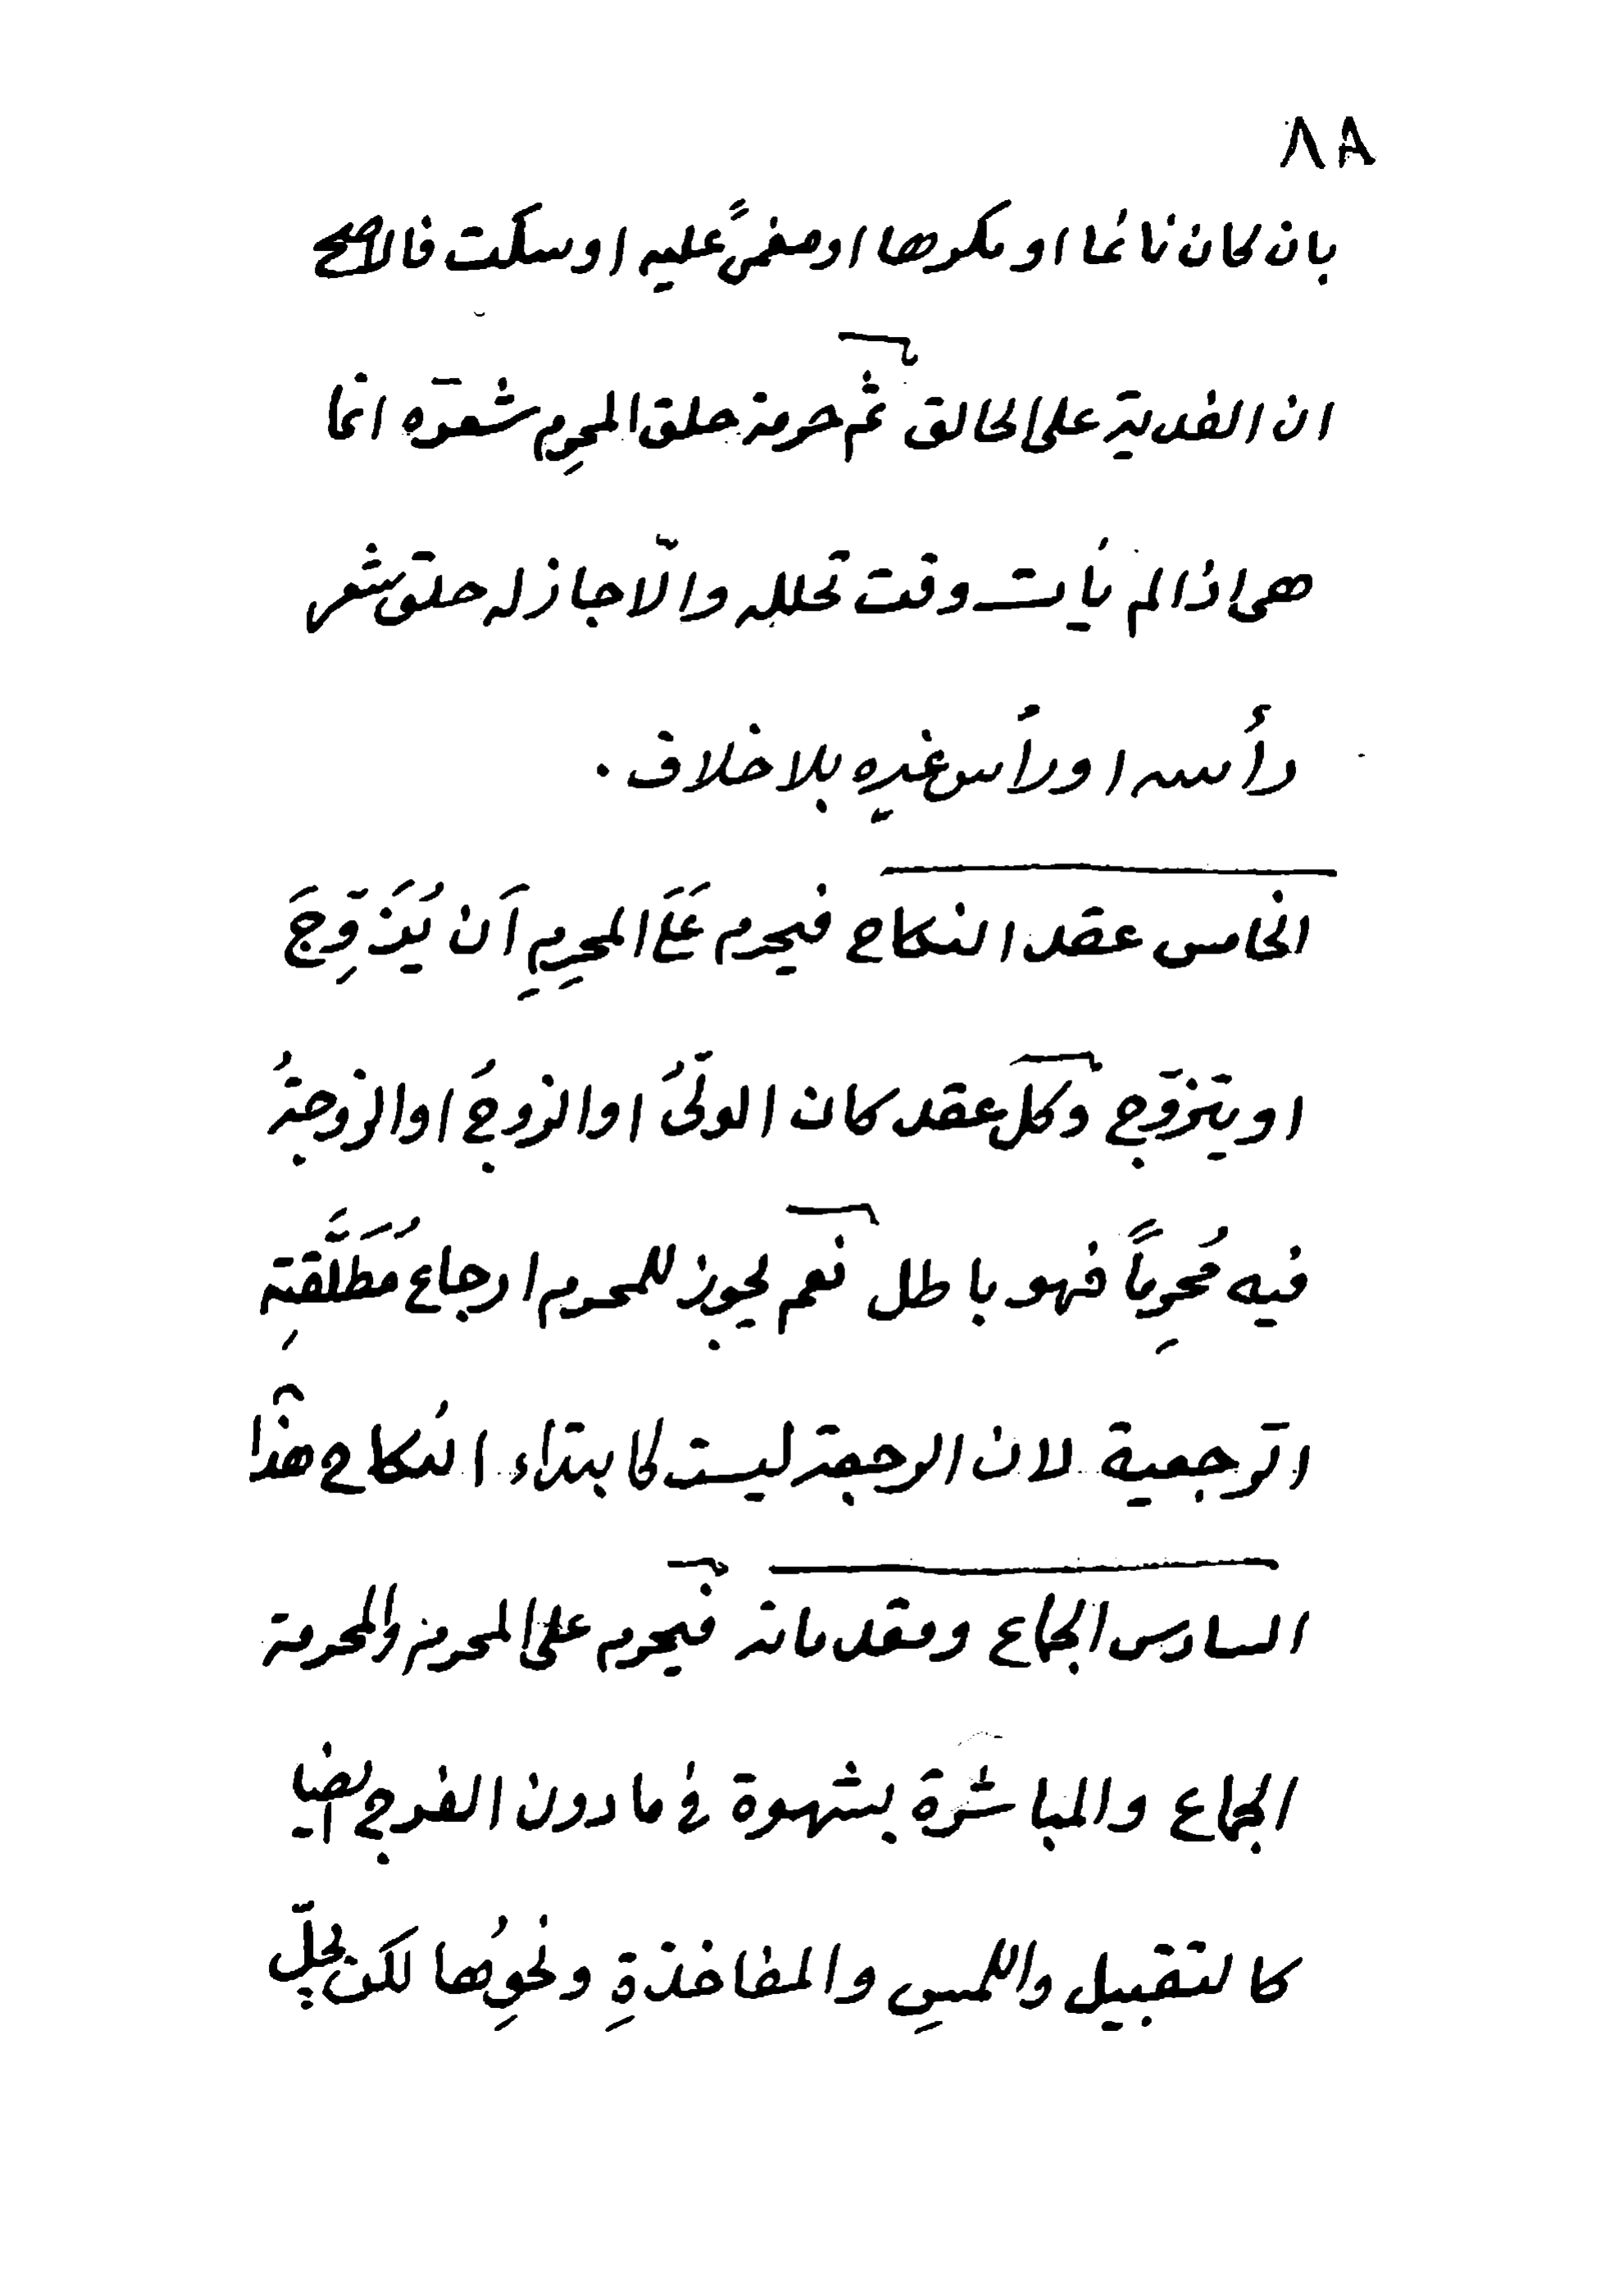 ٨٨
بان كان نائما او مكرها او مغمىً عليه او سكت فالاصح
ان الفدية على الحالق ثم حرمة حلق المحرِم شعرَه انما
هى اذا لم يأت وقت تحلله والّا جاز له حلق شعر
رأسه او رأس غيره بلا خلاف .
الخامس عقد النكاح فيحرم عَلَى المحرِمِ اَن يُزَوِّجَ
او يتزوّج وكل عقد كان الولىُّ او الزوجُ او الزوجةُ
فيه مُحرِماً فهو باطل نعم يجوز للمحرم ارجاع مُطَلَّقتِه
الرجعية لان الرجعة ليست كابتداء النكاح هذا
السادس الجماع ومقدماته فيحرم على المحرم والمحرمة
الجماع والمباشرة بشهوة فى مادون الفرج ايضا
كالتقبيل واللمسِ والمفاخذةِ ونحوِها لكن يحلّ